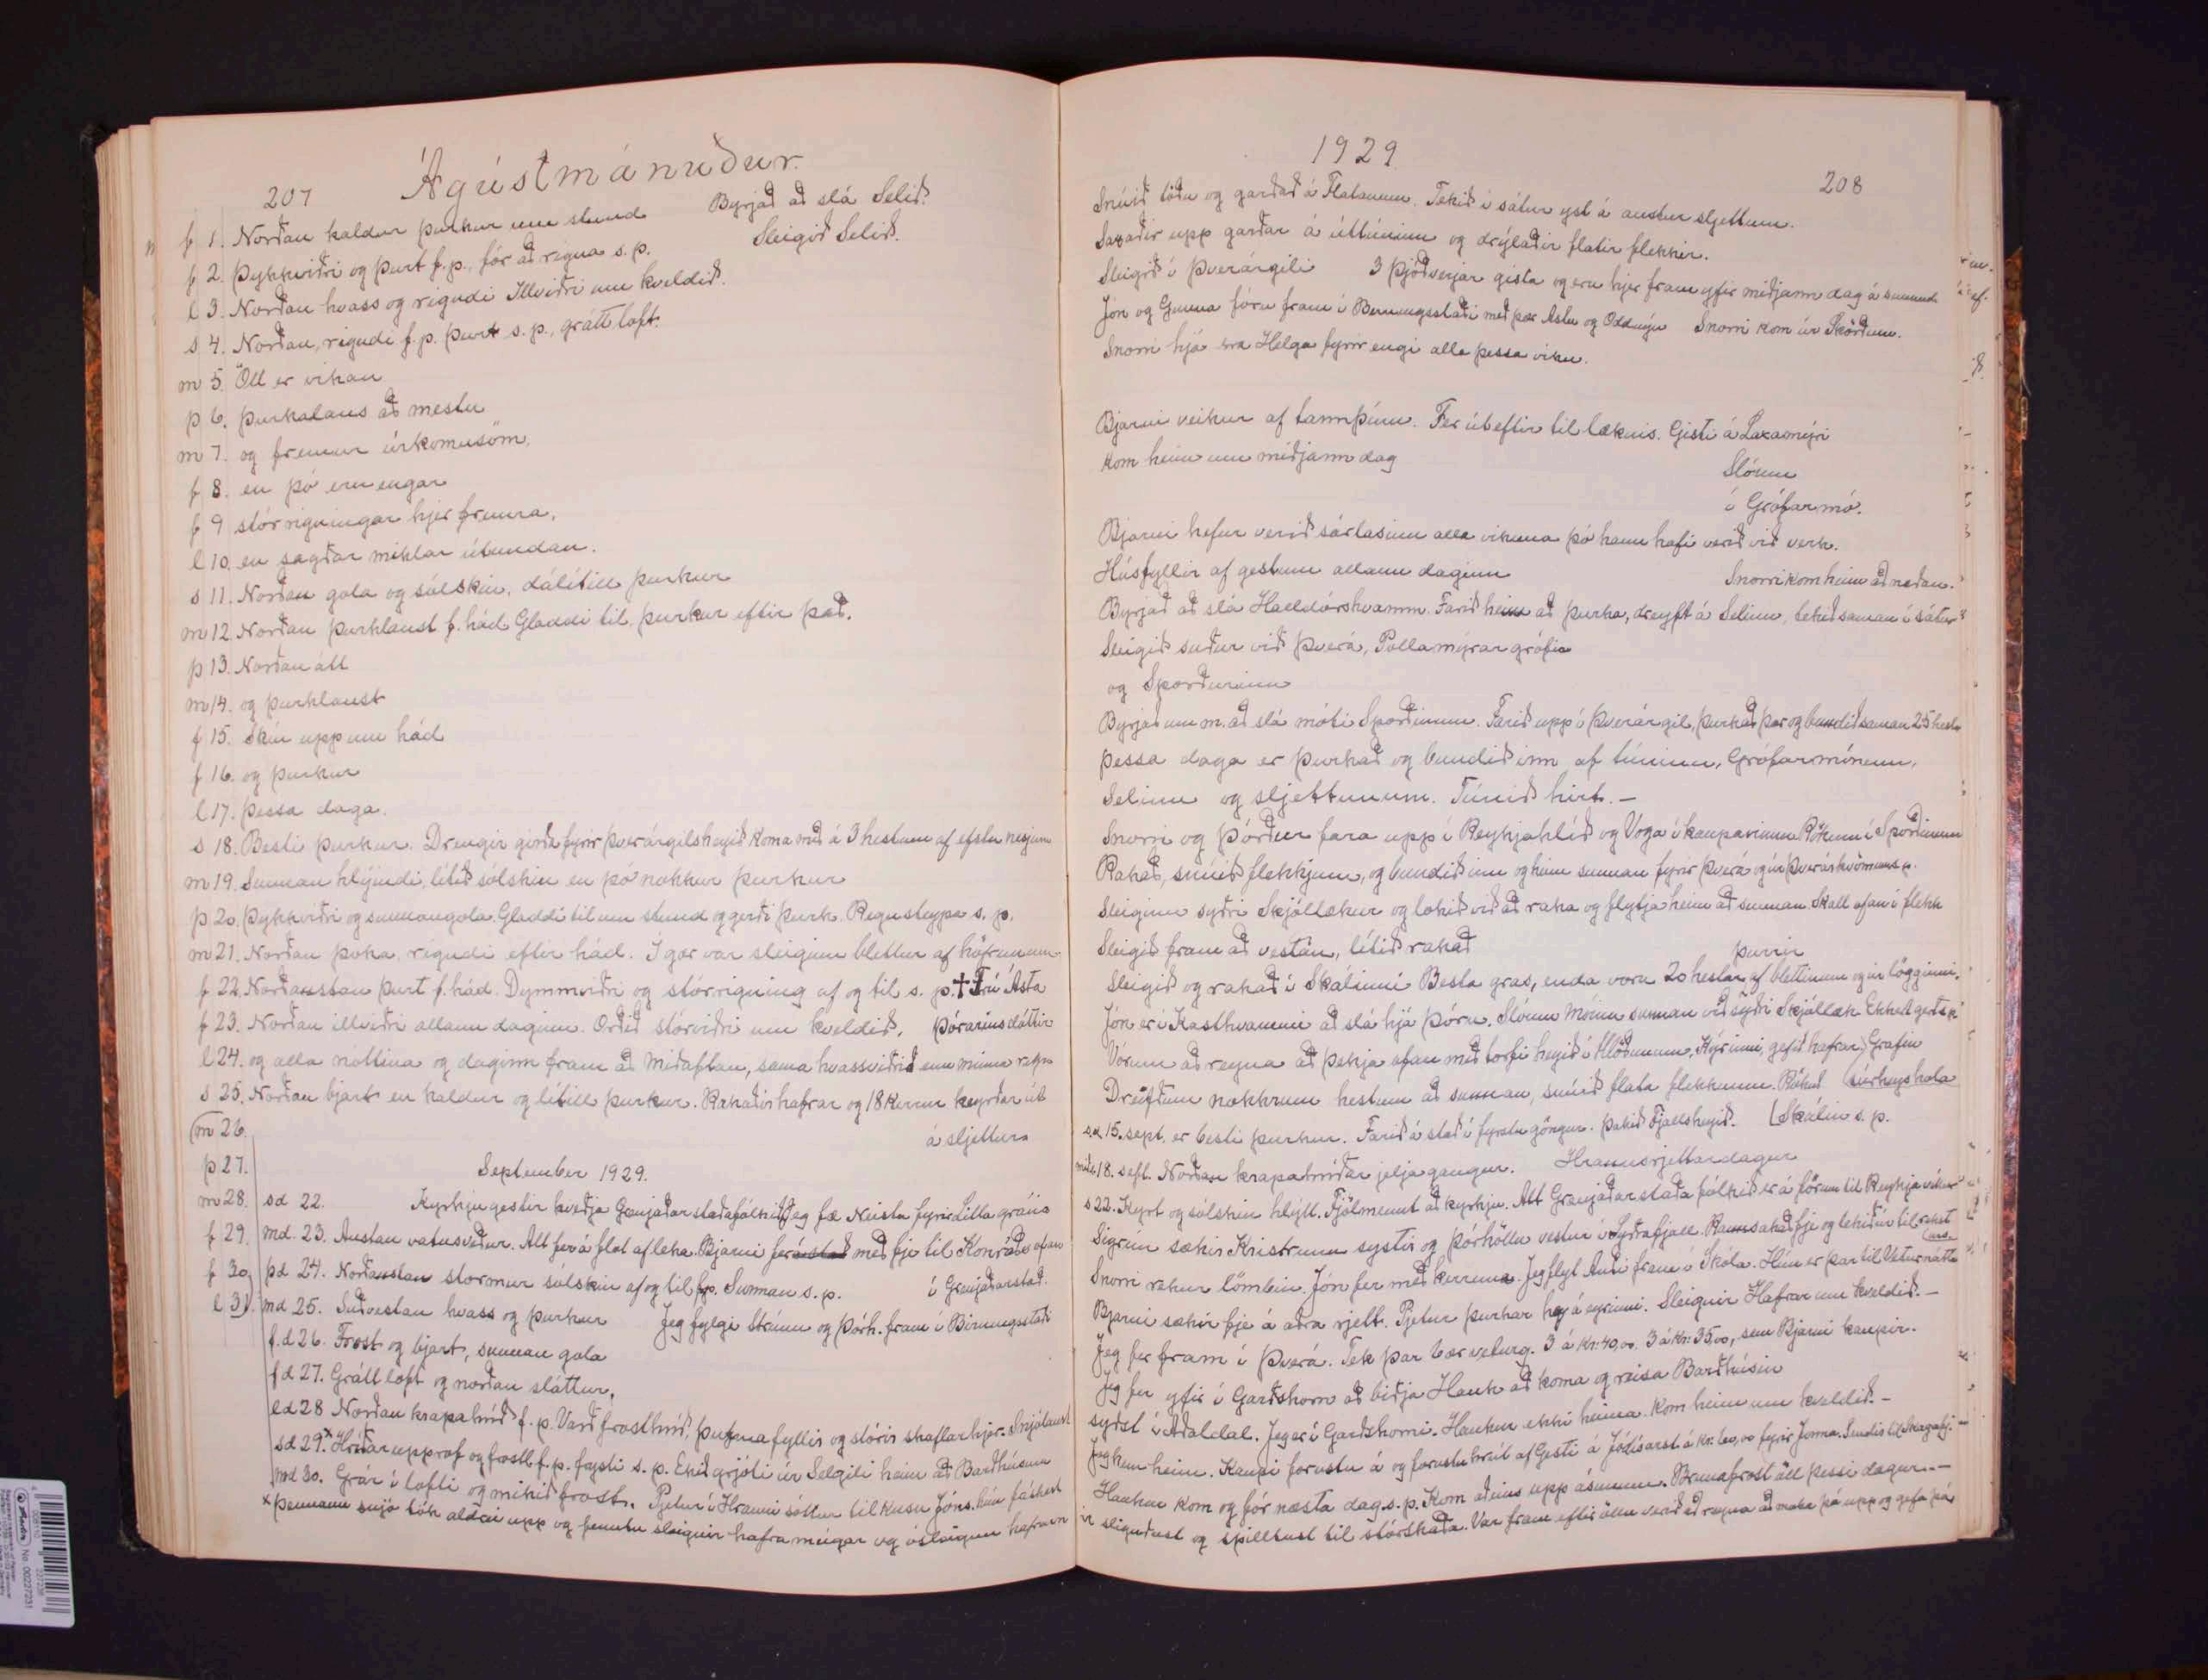 207
Ágústmánuður.
f 1. Norðan kaldur þurkur um stund Byrjað að slá Selið.
f 2. Þykkviðri og þurt f.p., fór að rigna s.p. Sleigið Selið.
l 3. Norðan hvass og rigndi Illviðri um kveldið.
s 4. Norðan, rigndi f.p. þurt s.p., grátt loft.
m 5. Öll er vikan
þ 6. þurkalaus að mestu
m 7. og fremur úrkomusöm,
f 8. en þó eru engar
f 9 stórrigningar hjer fremra,
l 10. en sagðar miklar útundan.
s 11. Norðan gola og sólskin, dálítill þurkur
m 12. Norðan þurklaust f. hád. Gladdi til, þurkur eftir það.
þ 13. Norðan átt
m 14. og þurklaust
f 15. Skin upp um hád
f 16. og þurkur
l 17. þessa daga.
s 18. Besti þurkur. Drengir girða fyrir Þverárgilsheyið koma með á 3 hestum af efstu
m 19. Sunnan hlýindi, lítið sólskin en þó nokkur þurkur
þ 20. Þykkviðri og sunnangola. Gladdi til um stund og gerði þurk. Regnsteypa s. p.
m 21. Norðan þoka, rigndi eftir hád. Í gær var sleiginn blettur af höfrunum
f 22. Norðaustan þurt f. hád. Dymmviðri og stórrigning af og til s. p. † Frú Ásta
f 23. Norðan illviðri allann daginn. Orðið stórviðri um kveldið. Þórarinsdóttir
l 24. og alla nóttina og daginn fram að miðaftan, sama hvassviðrið enn minna regn
s 25. Norðan bjart en kaldur og lítill þurkur. Rakaðir hafrar og 18 kerrur keyrðar út
m 26. á sljettur
þ 27. September 1929.
m 28. sd 22. Kyrkjugestir kveðja Grenjaðarstaðafólkið. Jeg fæ Neista fyrir Litla grána
f 29. md. 23. Austan vatnsveður. Alt fer á flot af leka. Bjarni fer á stað með fje til Konráðs ofan
f 30. þd 24. Norðaustan stormur sólskin af og til f.p. Sunnan s. p. í Grenjaðarstað.
l 31. md 25. Suðvestan hvass og þurkur Jeg fylgi Strínu og Þórh. fram í Birningsstaði
f.d 26. Frost og bjart, sunnan gola
fd 27. Grátt loft og norðan sláttur.
ld 28 Norðan krapahríð f. p. Varð frosthríð, þufnafyllir og stórir skaflar hjer. Snjólaust
sd 29.x Hríðar upprof og frostl. f. p. frysti s. p. Ekið grjóti úr Selgili heim að Barðhúsum
md 30. Grár í lofti og mikið frost. Pjetur í Hrauni sóttur til Kusu Jóns,
x Þennann snjó tók aldrei upp og fenntu sleignir hafra múgar og óslegnu hafrarn
1929
208
Snúið töðu og garðað á Flatanum. Tekið í sátur yst á austur sljettum.
Saxaðir upp garðar á úttúninu og drýlaðir flatir flekkir.
Sleigið í Þverárgili 3 Þjóðverjar gista og eru hjer fram yfir miðjann dag á sunnud
Jón og Gunna fóru fram í Birningsstaði með þær Ástu og Oddnýu Snorri kom úr Skörðum.
Snorri hjá sra Helga fyrir engi alla þessa viku.
Bjarni veikur af tannpínu. Fer úteftir til læknis. Gisti á Laxamýri
kom heim um miðjann dag
Slóum
í Grófarmó.
Bjarni hefur verið sárlasinn alla vikuna þó hann hafi verið við verk.
Húsfyllir af gestum allann daginn Snorri kom heim að neðan.
Byrjað að slá Halldórshvamm. Farið heim að þurka, dreyft á Selinu, tekið saman í sátur
Sleigið suður við Þverá, Pollamýrar grófin
og Sporðurinn
Byrjað um m. að slá móti Sporðinum. Farið upp í Þverárgil, þurkað þar og bundið saman 25 hesta
þessa daga er þurkað og bundið inn af túninu, Grófarmónum,
Selinu og sljettunum. Túnið hirt. –
Snorri og Þórður fara upp í Reykjahlíð og Voga í kaupavinnu Rökum í Sporðinum
Rakað, snúið flekkjum, og bundið inn og heim sunnan fyrir Þverá og úr Þverárhvömmum.
Sleiginn syðri Skjóllækur og lokið við að raka og flytja heim að sunnan. Skall ofan í flekk
Sleigið fram að vestan, lítið rakað
þurrir
Sleigið og rakað í Skálinni Besta gras, enda voru 20 hestar af blettinum og úr lögginni.
Jón er í Kasthvammi að slá hjá Þóru. Slóum Móinn sunnan við syðri Skjóllæk Ekkert gert s.p.
Vórum að reyna að þekja ofan með torfi heyið í Hlöðunum. Kýrinni gefið hafrar) Grafin
Dreifðum nokkrum hestum að sunnan, snúið flata flekknum. Rökuð súrheyshola
s.d. 15. sept. er besti þurkur. Farið á stað í fyrstu göngur. þakið Fjallsheyið. (Skálin s. p.
mvd. 18. sept. Norðan krapahríðar jeljagangur. Hraunsrjettardagur
s 22. Kyrt og sólskin hlýtt. Fjölmennt að kyrkju. Alt Grenjaðarstaða fólkið er á förum til Reykjavíkur
Sigrún sækir Kristrúnu systir og Þórhöllu vestur í Syðrafjall. Raunsakað fje og tekið úr til rekst
(urs.
Snorri rekur lömbin. Jón fer með kerruna. Jeg flyt Auði fram í Skóla. Hún er þar til Veturnátta
Bjarni sækir fje á aðra rjett. Pjetur þurkar hey á eyrinni. Sleignir Hafrar um kveldið. –
Jeg fer fram í Þverá. Tek þar 6 ær veturg. 3 á Kr: 40,00. 3 á Kr: 35,00, sem Bjarni kaupir.
Jeg fer yfir í Garðshorn að biðja Hauk að koma og reisa Barðhúsin
syðst í Aðaldal. Jeg er í Garðshorni. Haukur ekki heima. Kom heim um kveldið. –
Jeg kem heim. Kaupi forustu á og forustu hrút af Gesti á Jódísarst. á Kr. 60,00 fyrir Jonna. Sendir til Skagafj. –
Haukur kom og fór næsta dag s. p. Kom aðeins upp ásunum. Brunafrost all þessi dagur. –
ir sligudust og spilltust til stórskaða. Var fram eftir öllu verið að reyna að moka þá upp og gefa þá